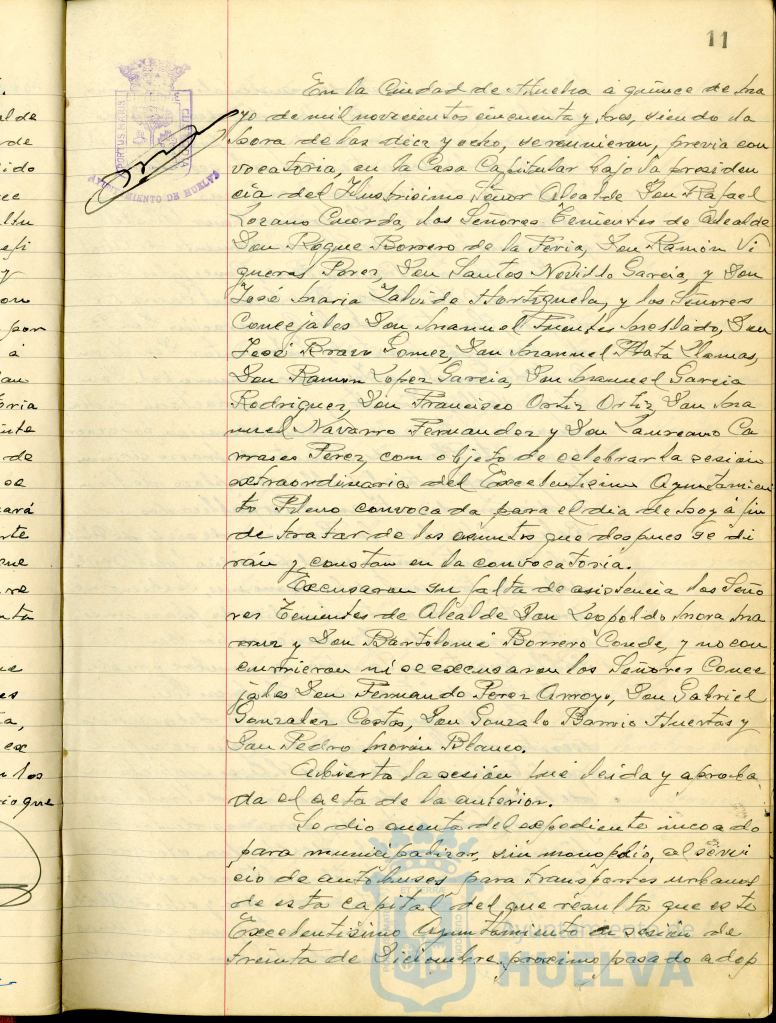 11
En la Ciudad de Huelva á quince de Ma
yo de mil novecientos cincuenta y tres, siendo la
hora de las diez y ocho, se reunieron, previa con
vocatoria, en la Casa Capitular bajo la presiden
cia del Ilustrisimo Señor Alcalde Don Rafael
Lozano Cuerda, los Señores Tenientes de Alcalde
Don Roque Borrero de la Feria, Don Ramón Vi
gueras Perez, Don Santos Novillo Garcia, y Don
José Maria Zalvide Hortiguela, y los Señores
Concejales Don Manuel Fuentes Mellado, Don
José Bravo Gomez, Don Manuel Plata Llamas,
Don Ramon Lopez Garcia, Don Manuel Garcia
Rodriguez, Don Francisco Ortiz Ortiz, Don Ma
nuel Navarro Fernandez y Don Laureano Ca
rrasco Perez, con objeto de celebrar la sesión
extraordinaria del Excelentisimo Ayuntamien
to Pleno convocada para el dia de hoy á fin
de tratar de los asuntos que despues se di
rán y constan en la convocatoria.
Excusaron su falta de asistencia los Seño
res Tenientes de Alcalde Don Leopoldo Mora Ma
y Don Bartolomé Borrero Conde, y no con
currieron ni se excusaron los Señores Conce
jales Don Fernando Perez Arroyo, Don Gabriel
Gonzalez Costas, Don Gonzalo Barrio Huertas y
Don Pedro Morán Blanco.
Abierta la sesión fué leida y aproba
da el acta de la anterior.
Se dio cuenta del expediente incoado
para municipalizar, sin monopolio, el servi
cio de autobuses para transportes urbanos
de esta capital del que resulta que este
Excelentisimo Ayuntamiento en sesión de
treinta de Diciembre proximo pasado adop
AYUNTAMIENTO DE HUELVA
Ayuntamiento de
HUELVA